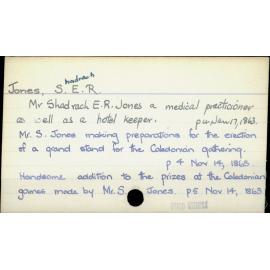 hadrach
Jones, S. E. R.
Mr Shadrach E.R. Jones a medical practicioner
as well as a hotel keeper. p 4 Nov 17, 1863.
Mr. S. Jones making preparations for the erection
of a grand stand for the Caledonian gathering.
p 4 Nov 14, 1863.
Handsome addition to the prizes at the Caledonian
games made by Mr. S. Jones. p5 Nov 14, 1863